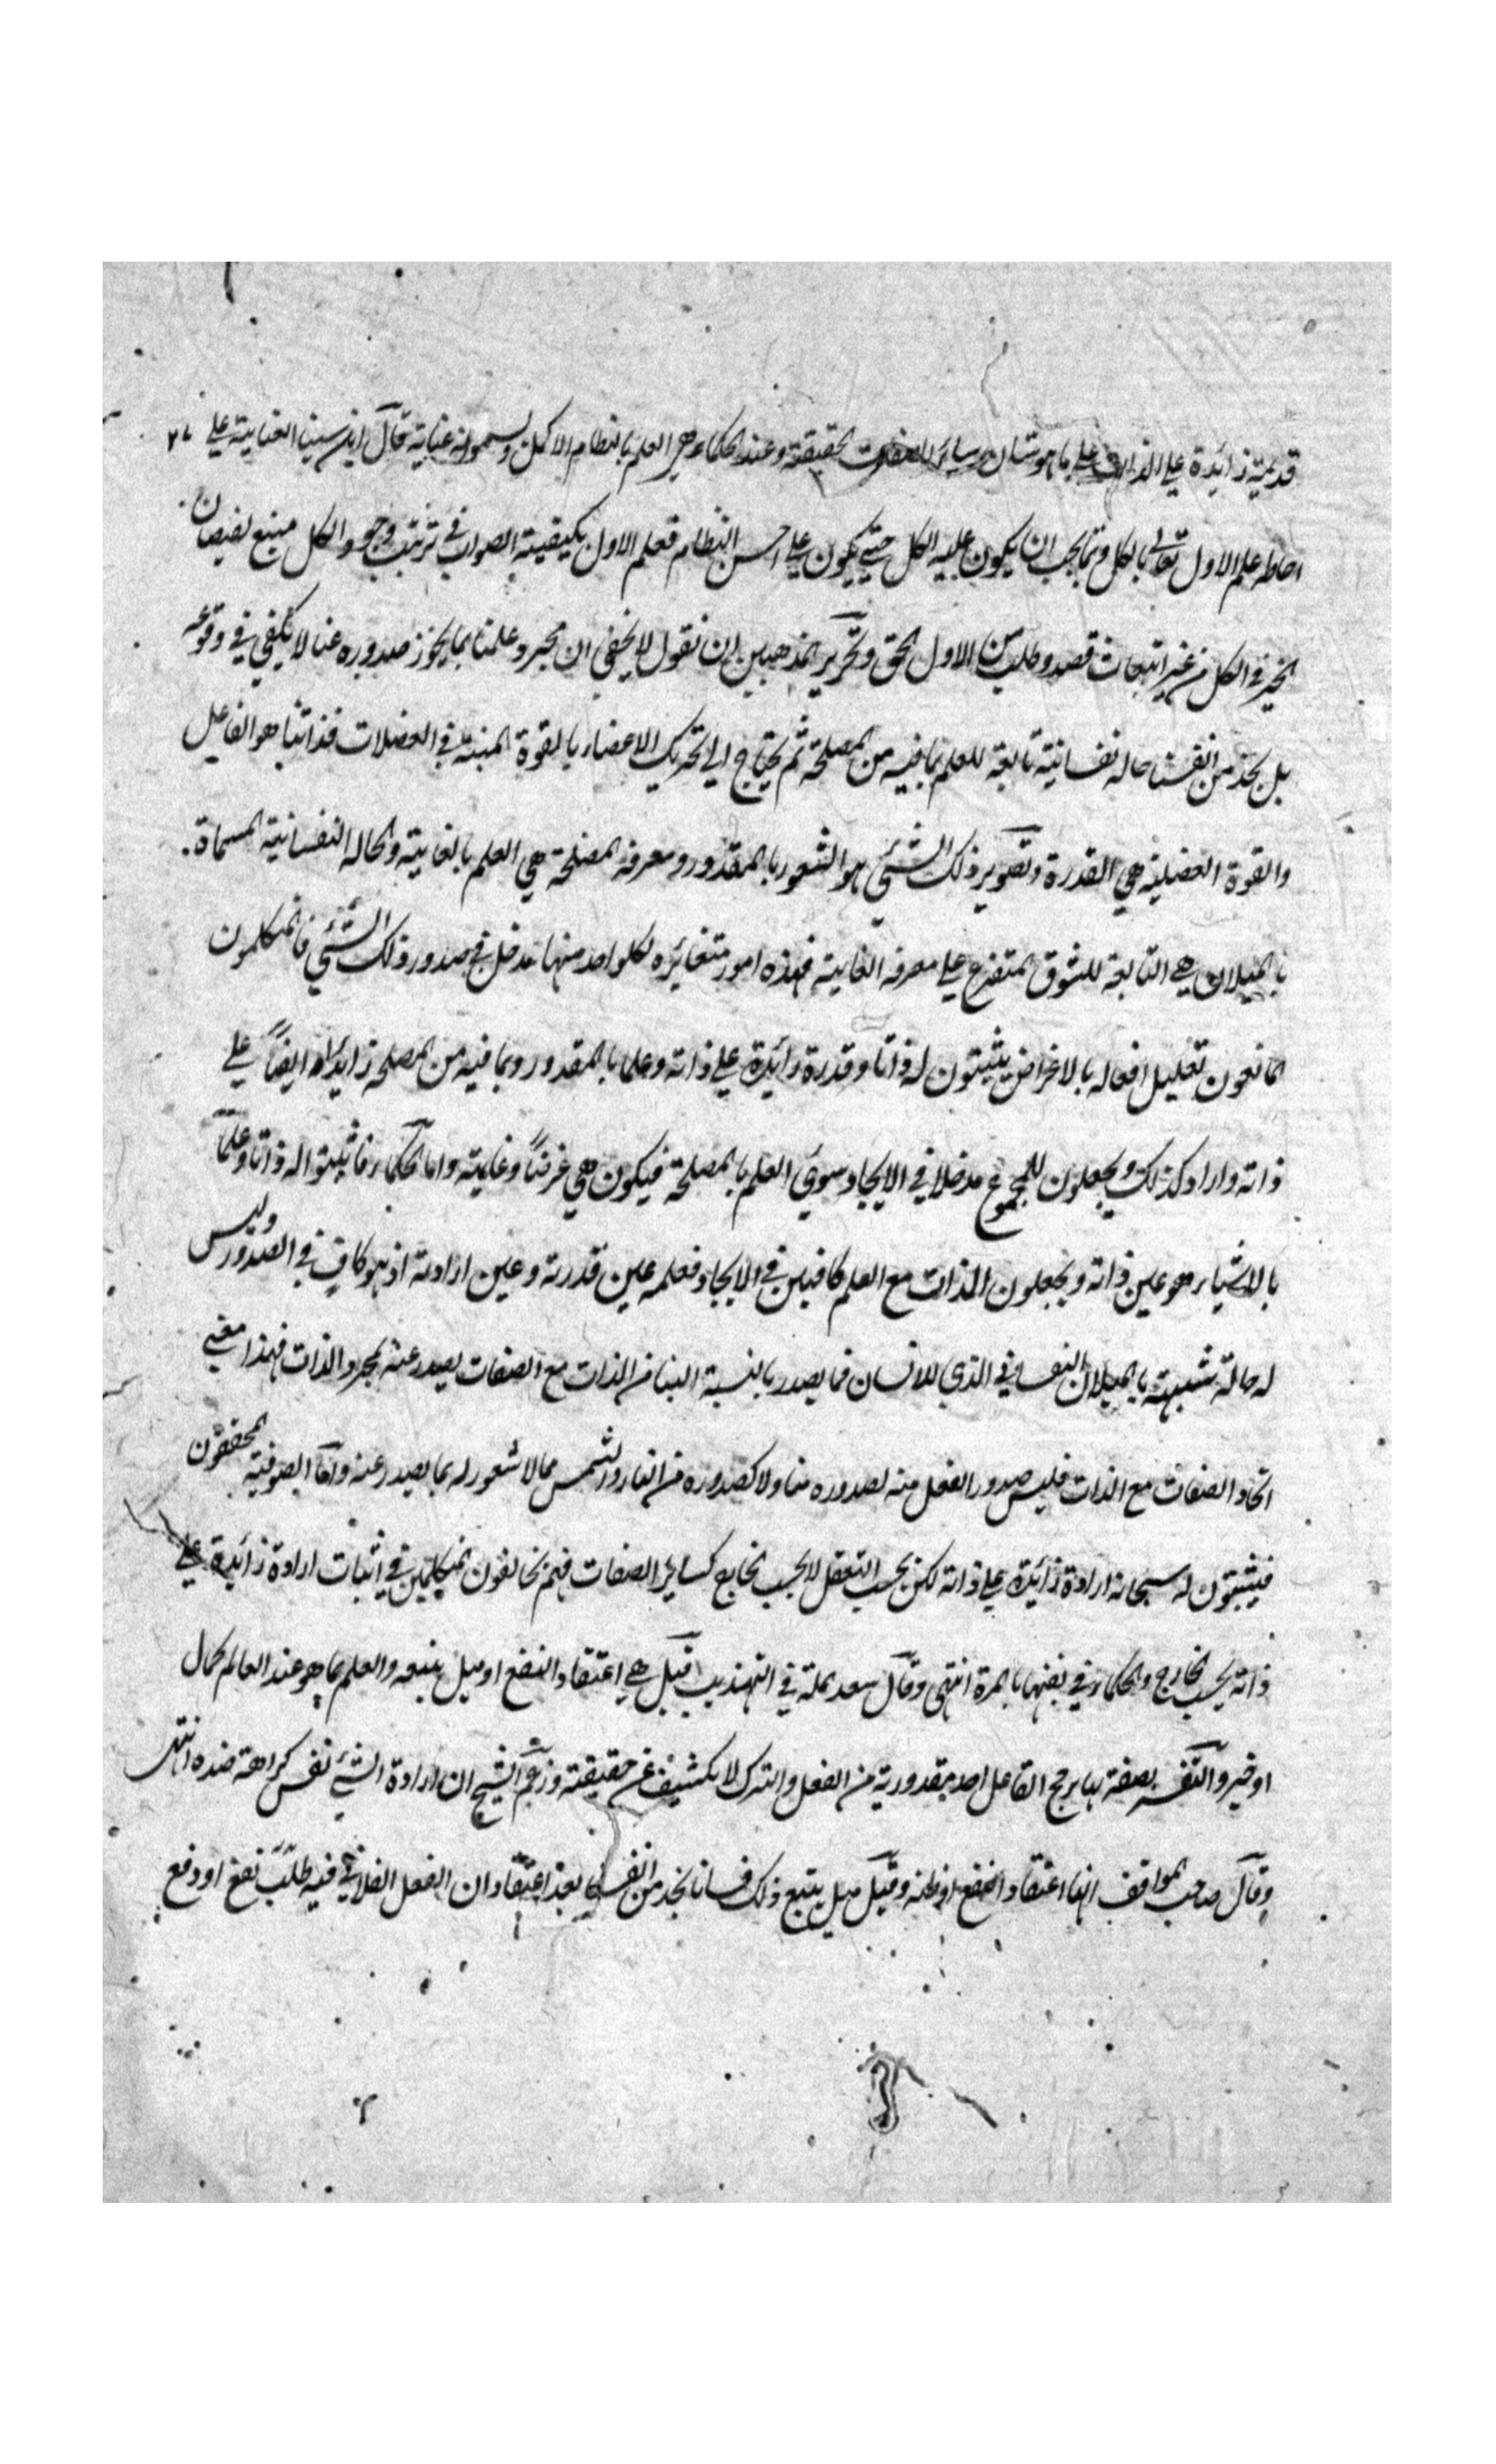 قديمة زائدة علي الذات علي ما هو شان سائر الصفات الحقيقة وعند الحكماء هي العلم بالنظام الاكمل ويسمونه عناية قال ابن سينا العناية هي
احاطه علم الاول تعالي بالكل وبما يجب ان يكون عليه الكل حتي يكون علي احسن النظام فعلم الاول بكيفية الصواب في ترتيب وجود الكل منبع لفيضان
الخير في الكل من غير انبعاث قصد وطلب من الاول الحق وتحرير المذهبين ان نقول لا يخفي ان مجرد علمنا بما يجوز صدوره عنا لا يكفي في وقوعه
بل نجد من انفسنا حاله نفسانية تابعة للعلم بما فيه من المصلحة ثم يحتاج الي تحريك الاعضاء بالقوة المنبثة في العضلات فذاتنا هو الفاعل
والقوة العضلية هي القدرة وتصوير ذلك الشئي هو الشعور بالمقدور ومعرفة المصلحة هي العلم بالغاية والحاله النفسانية المسماة
بالميلان هي التابعة للشوق المتفرع علي معرفة الغاية فهذه امور متغائره لكل واحد منها مدخل في صدور ذلك الشئي فالمتكلمون
المانعون تعليل افعاله بالاغراض يثبتون له ذاتا وقدرة زائدة علي ذاته وعلما بالمقدور وبما فيه من المصلحة زايدا ايضاً علي
ذاته وارادة كذلك ويجعلون للمجموع مدخلا في الايجاد سوي العلم بالمصلحة فيكون هي غرضاً وغاية واما الحكماء فاثبتوا له ذاتا وعلما
بالاشياء هو عين ذاته ويجعلون الذات مع العلم كافيين في الايجاد فعلمه عين قدرته وعين ارادته اذ هو كاف في الصدور وليس
له حالة شبيهة بالميلان النفساني الذي للانسان فما يصدر بالنسبة الينا من الذات مع الصفات يصدر عنه بمجرد الذات فهذا معني
اتحاد الصفات مع الذات فليس صدور الفعل منه كصدوره منا ولا كصدوره من النار والشمس مما لا شعور له بما يصدر عنه واما الصوفية المحققون
فيثبتون له سبحانه ارادة زائدة علي ذاته لكن بحسب التعقل لا بحسب الخارج كسائر الصفات فهم يخالفون المتكلمين في اثبات ارادة زائدة علي
ذاته بحسب الخارج والحكماء في نفيها بالمرة انتهي وقال سعد الملة في التهذيب قيل هي اعتقاد النفع او ميل يتبعه والعلم بما هو عند العالم كمال
او خير والتفسير بصفة بها يرجح الفاعل احد مقدوريه من الفعل والترك لا يكشف عن حقيقته وزعم الشيخ ان ارادة الشئ نفس كراهة ضده انتهي
وقال صاحب المواقف انها اعتقاد النفع او ظنه وقيل ميل يتبع ذلك فانا نجد من انفسنا بعد اعتقاد ان الفعل الفلاني فيه جلب نفع او دفع